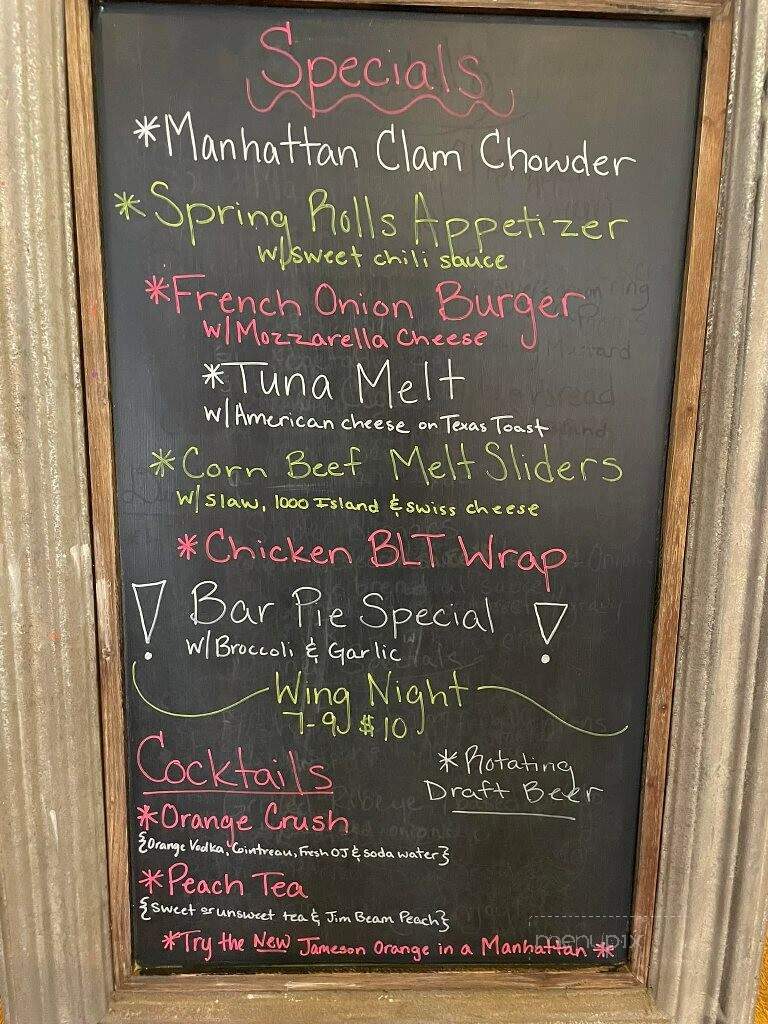 Specials
*Manhattan Clam Chowder
*Spring Rolls Appetizer
w/sweet chili sauce
*French Onion Burger
w/Mozzarella Cheese
*Tuna Melt
w/American cheese on Texas Toast
*Corn Beef Melt Sliders
w/slaw, 1000 Island & swiss cheese
*Chicken BLT Wrap
! Bar Pie Special !
w/Broccoli & Garlic
Wing Night
7-9 $10
Cocktails
*Rotating
Draft Beer
*Orange Crush
{Orange Vodka, Cointreau, Fresh OJ & soda water}
*Peach Tea
{sweet or unsweet tea & Jim Beam Peach}
*Try the New Jameson Orange in a Manhattan*
menupix